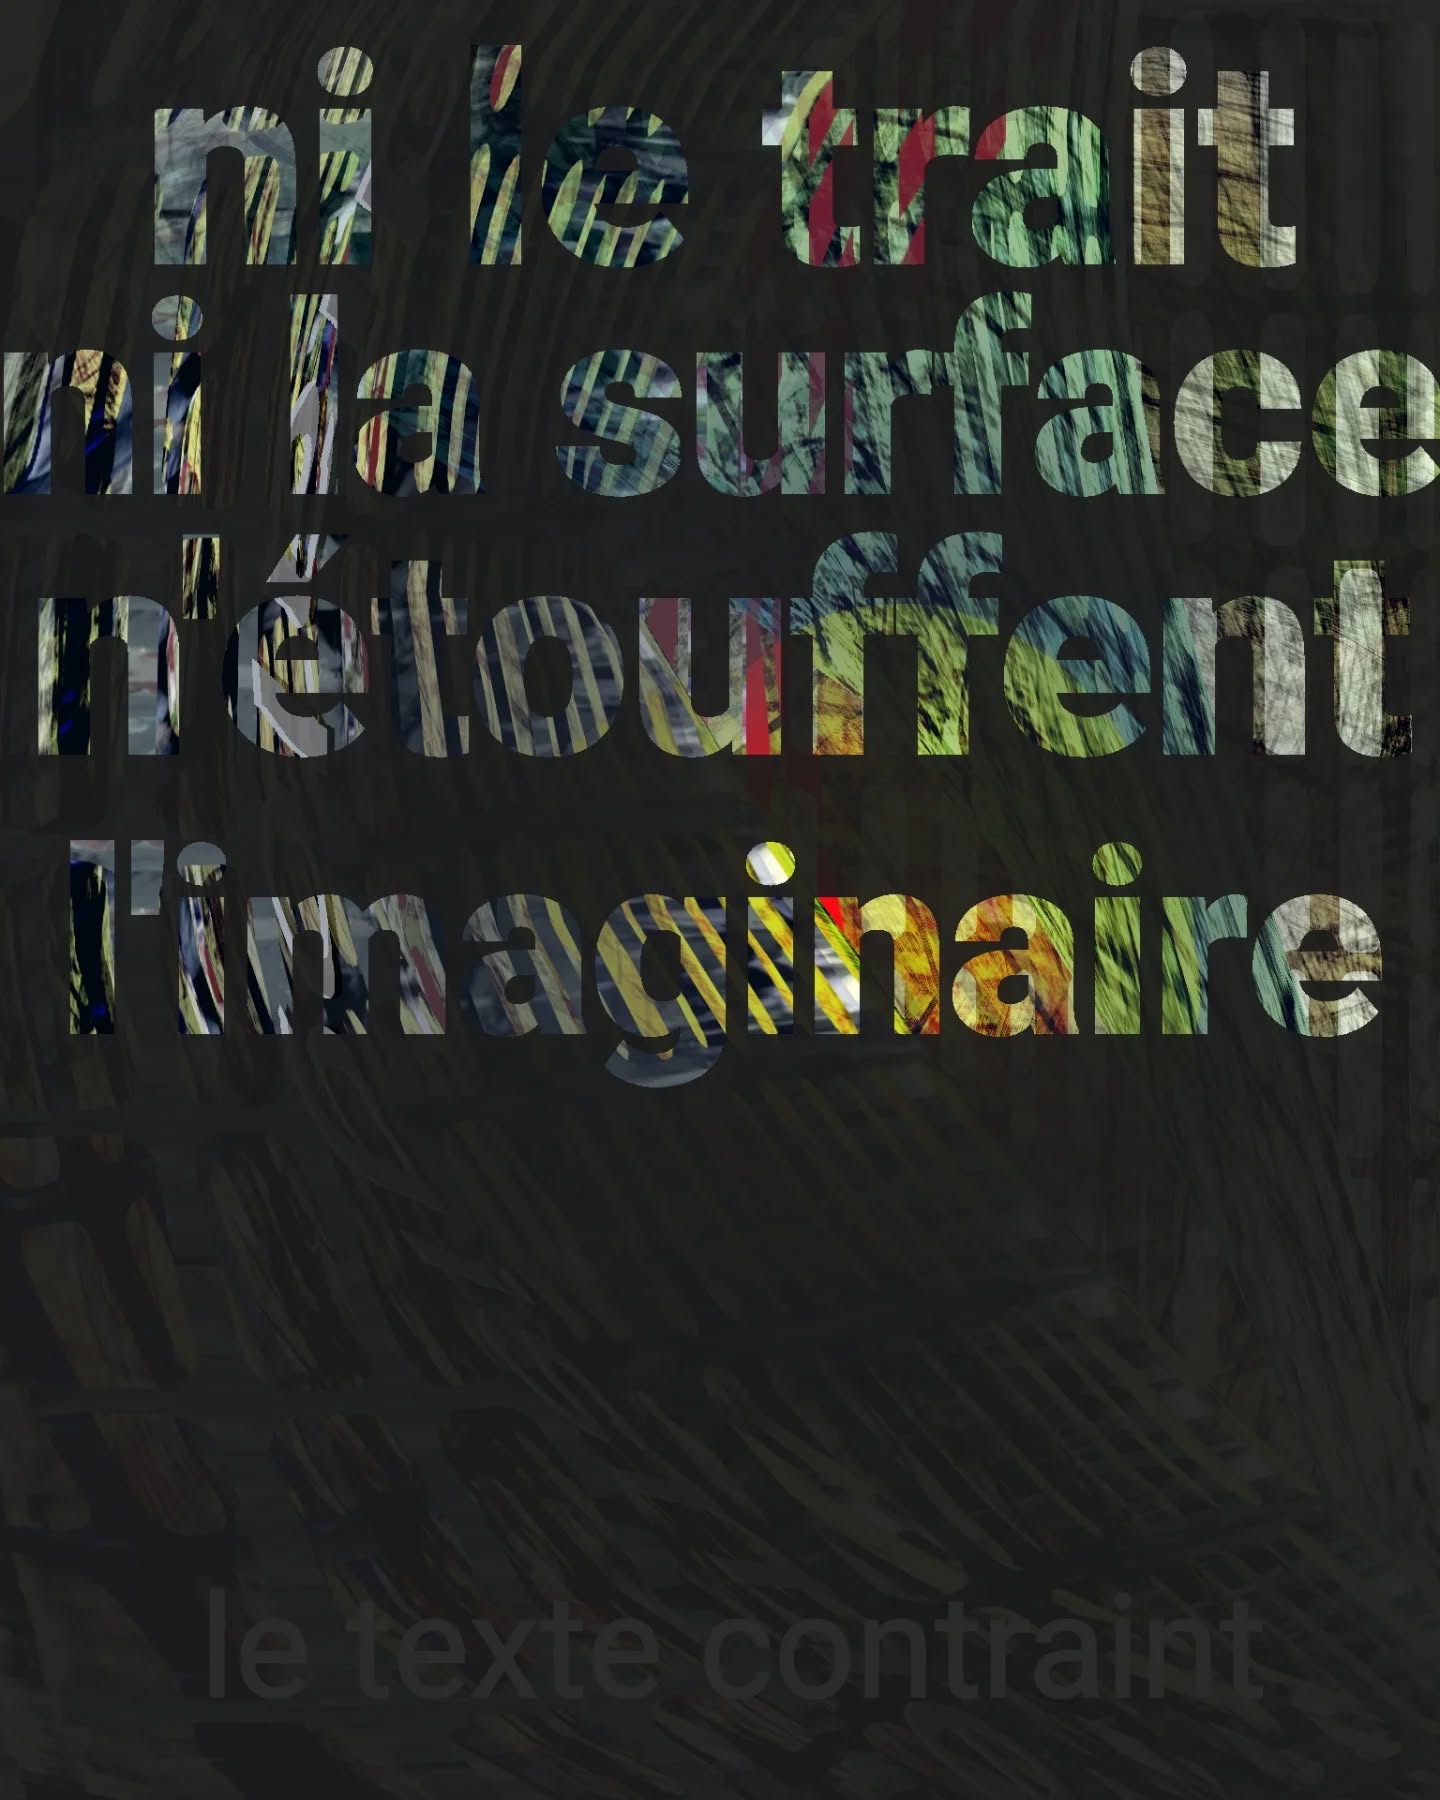 ni le trait
ni la surface
n'étouffent
l'imaginaire
le texte contraint